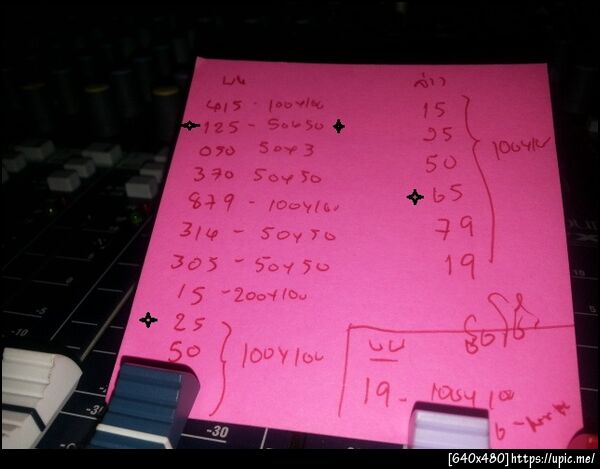 บน
415 - 100x100
125 - 50x50
090 50x3
370 50x50
879 - 100x100
314 - 50x50
305 - 50x50
15 - 200x100
25
50
100x100
ล่าง
15
25
50
65
79
19
100x100
บน
19 -
-10
-30
-30
[640x480]https://upic.me/